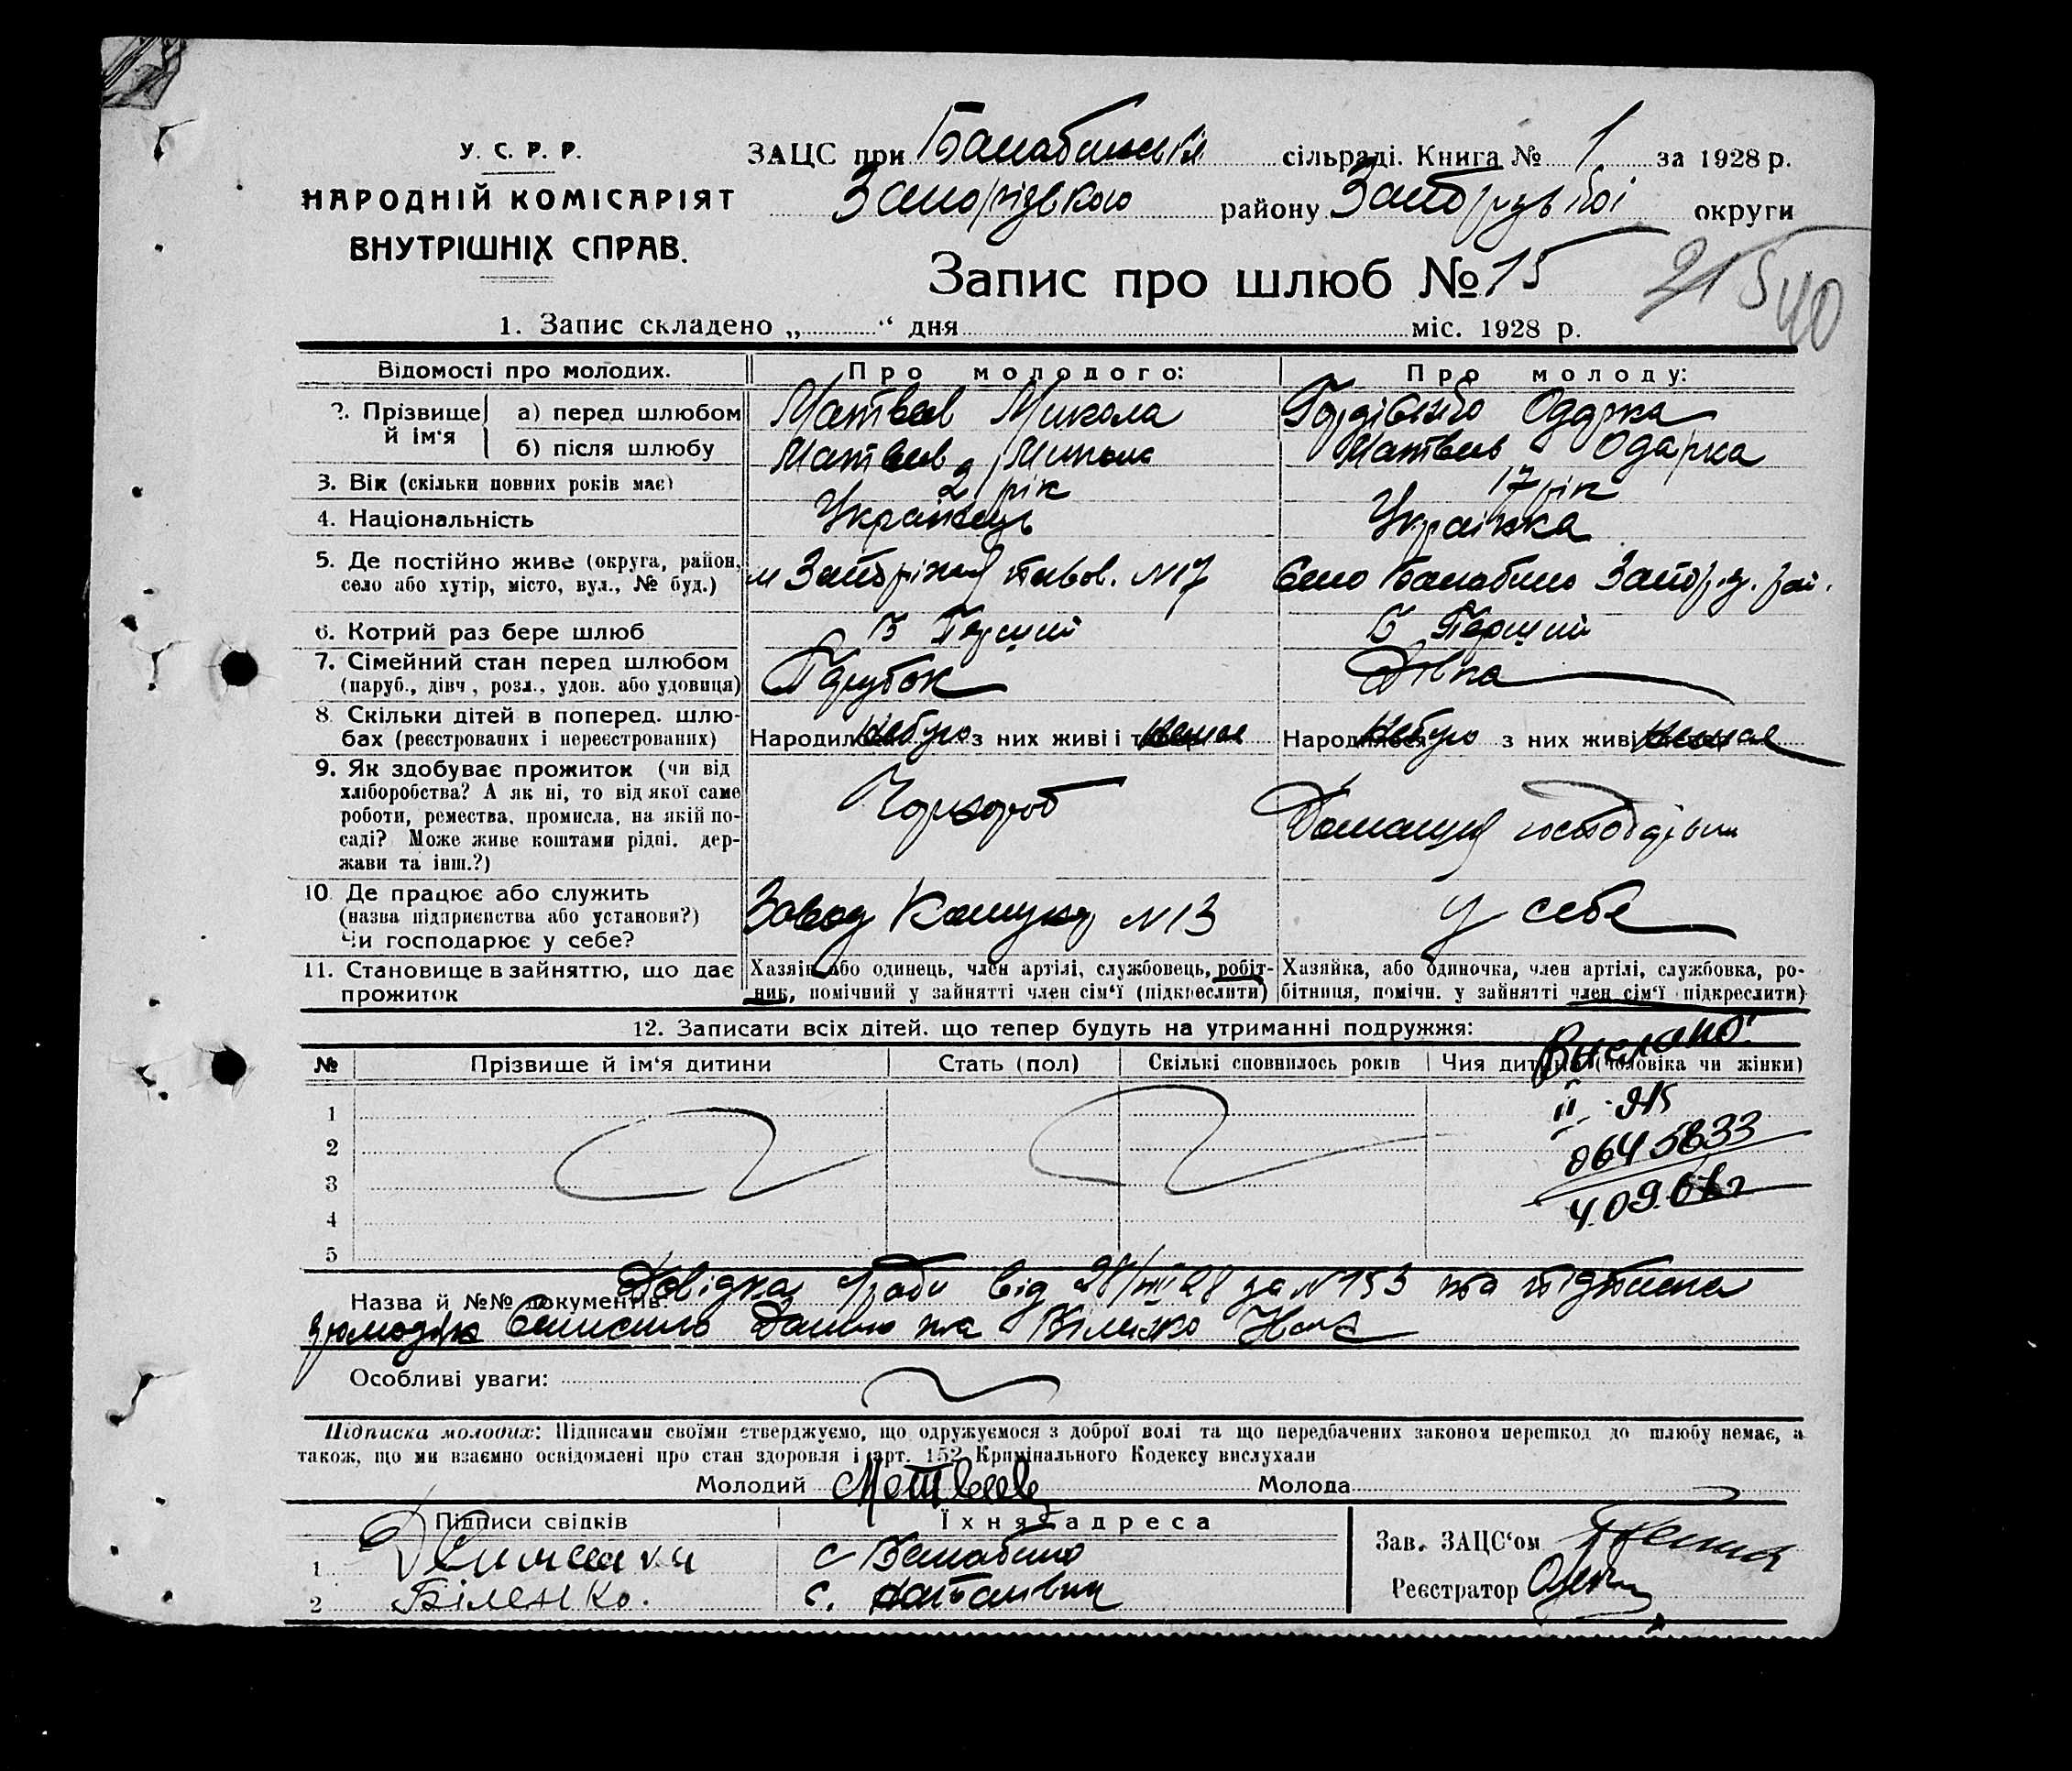 У. С. Р. Р.
НАРОДНІЙ КОМІСАРІЯТ
ВНУТРІШНІХ СПРАВ.
ЗАЦС при Балабинській сільраді. Книга № 1 за 1928 р.
району округи
Запис про шлюб № 15
21 540
1. Запис складено „ “ дня міс. 1928 р.
Відомості про молодих. Про молодого: Про молоду:
2. Прізвище й ім‘я а) перед шлюбом Матвеев Микола Гордієнко Одарка
б) після шлюбу Матвеев Микола Матвеев Одарка
3. Вік (скільки повних років має) 21 рік 17 рік
4. Національність Українець Українка
5. Де постійно живе (округа, район, село або хутір, місто, вул., № буд.) м Запоріжжя №17 Село Балабино Запоріз. рай.
6. Котрий раз бере шлюб В Перший В Перший
7. Сімейний стан перед шлюбом (паруб., дівч., розл., удов. або удовиця) Парубок Дівка
8. Скільки дітей в поперед. шлюбах (реєстрованих і нереєстрованих) Народилося небуло з них живі і т немає Народилося небуло з них живі немає
9. Як здобуває прожиток (чи від хліборобства? А як ні, то від якої саме роботи, ремества, промисла, на якій посаді? Може живе коштами рідні, держави та інш.?) Чорнороб Домашня
10. Де працює або служить (назва підприємства або установи?) Чи господарює у себе? Завод Комунар №13 у себе
11. Становище в зайняттю, що дає прожиток Хазяїн або одинець, член артілі, службовець, робітник, помічний у зайнятті член сім‘ї (підкреслити) Хазяйка, або одиночка, член артілі, службовка, робітниця, помічн. у зайнятті член сім‘ї (підкреслити)
12. Записати всіх дітей, що тепер будуть на утриманні подружжя:
№ Прізвище й ім‘я дитини Стать (пол) Скількі сповнилось років Чия дитина (чоловіка чи жінки)
Вислано
1
2 0645833
3
4
5
Назва й №№ документів: Довідка с/ради від за №153 та підписка
громадян Данило та Біленко
Особливі уваги:
Підписка молодих: Підписами своїми стверджуємо, що одружуємося з доброї волі та що передбачених законом перешкод до шлюбу немає, а
також, що ми взаємно освідомлені про стан здоровля і арт. 152 Кримінального Кодексу вислухали
Молодий Матвеев Молода
Підписи свідків Їхня адреса
1 с Балабино
2 Біленко. с.
Зав. ЗАЦС‘ом
Реєстратор